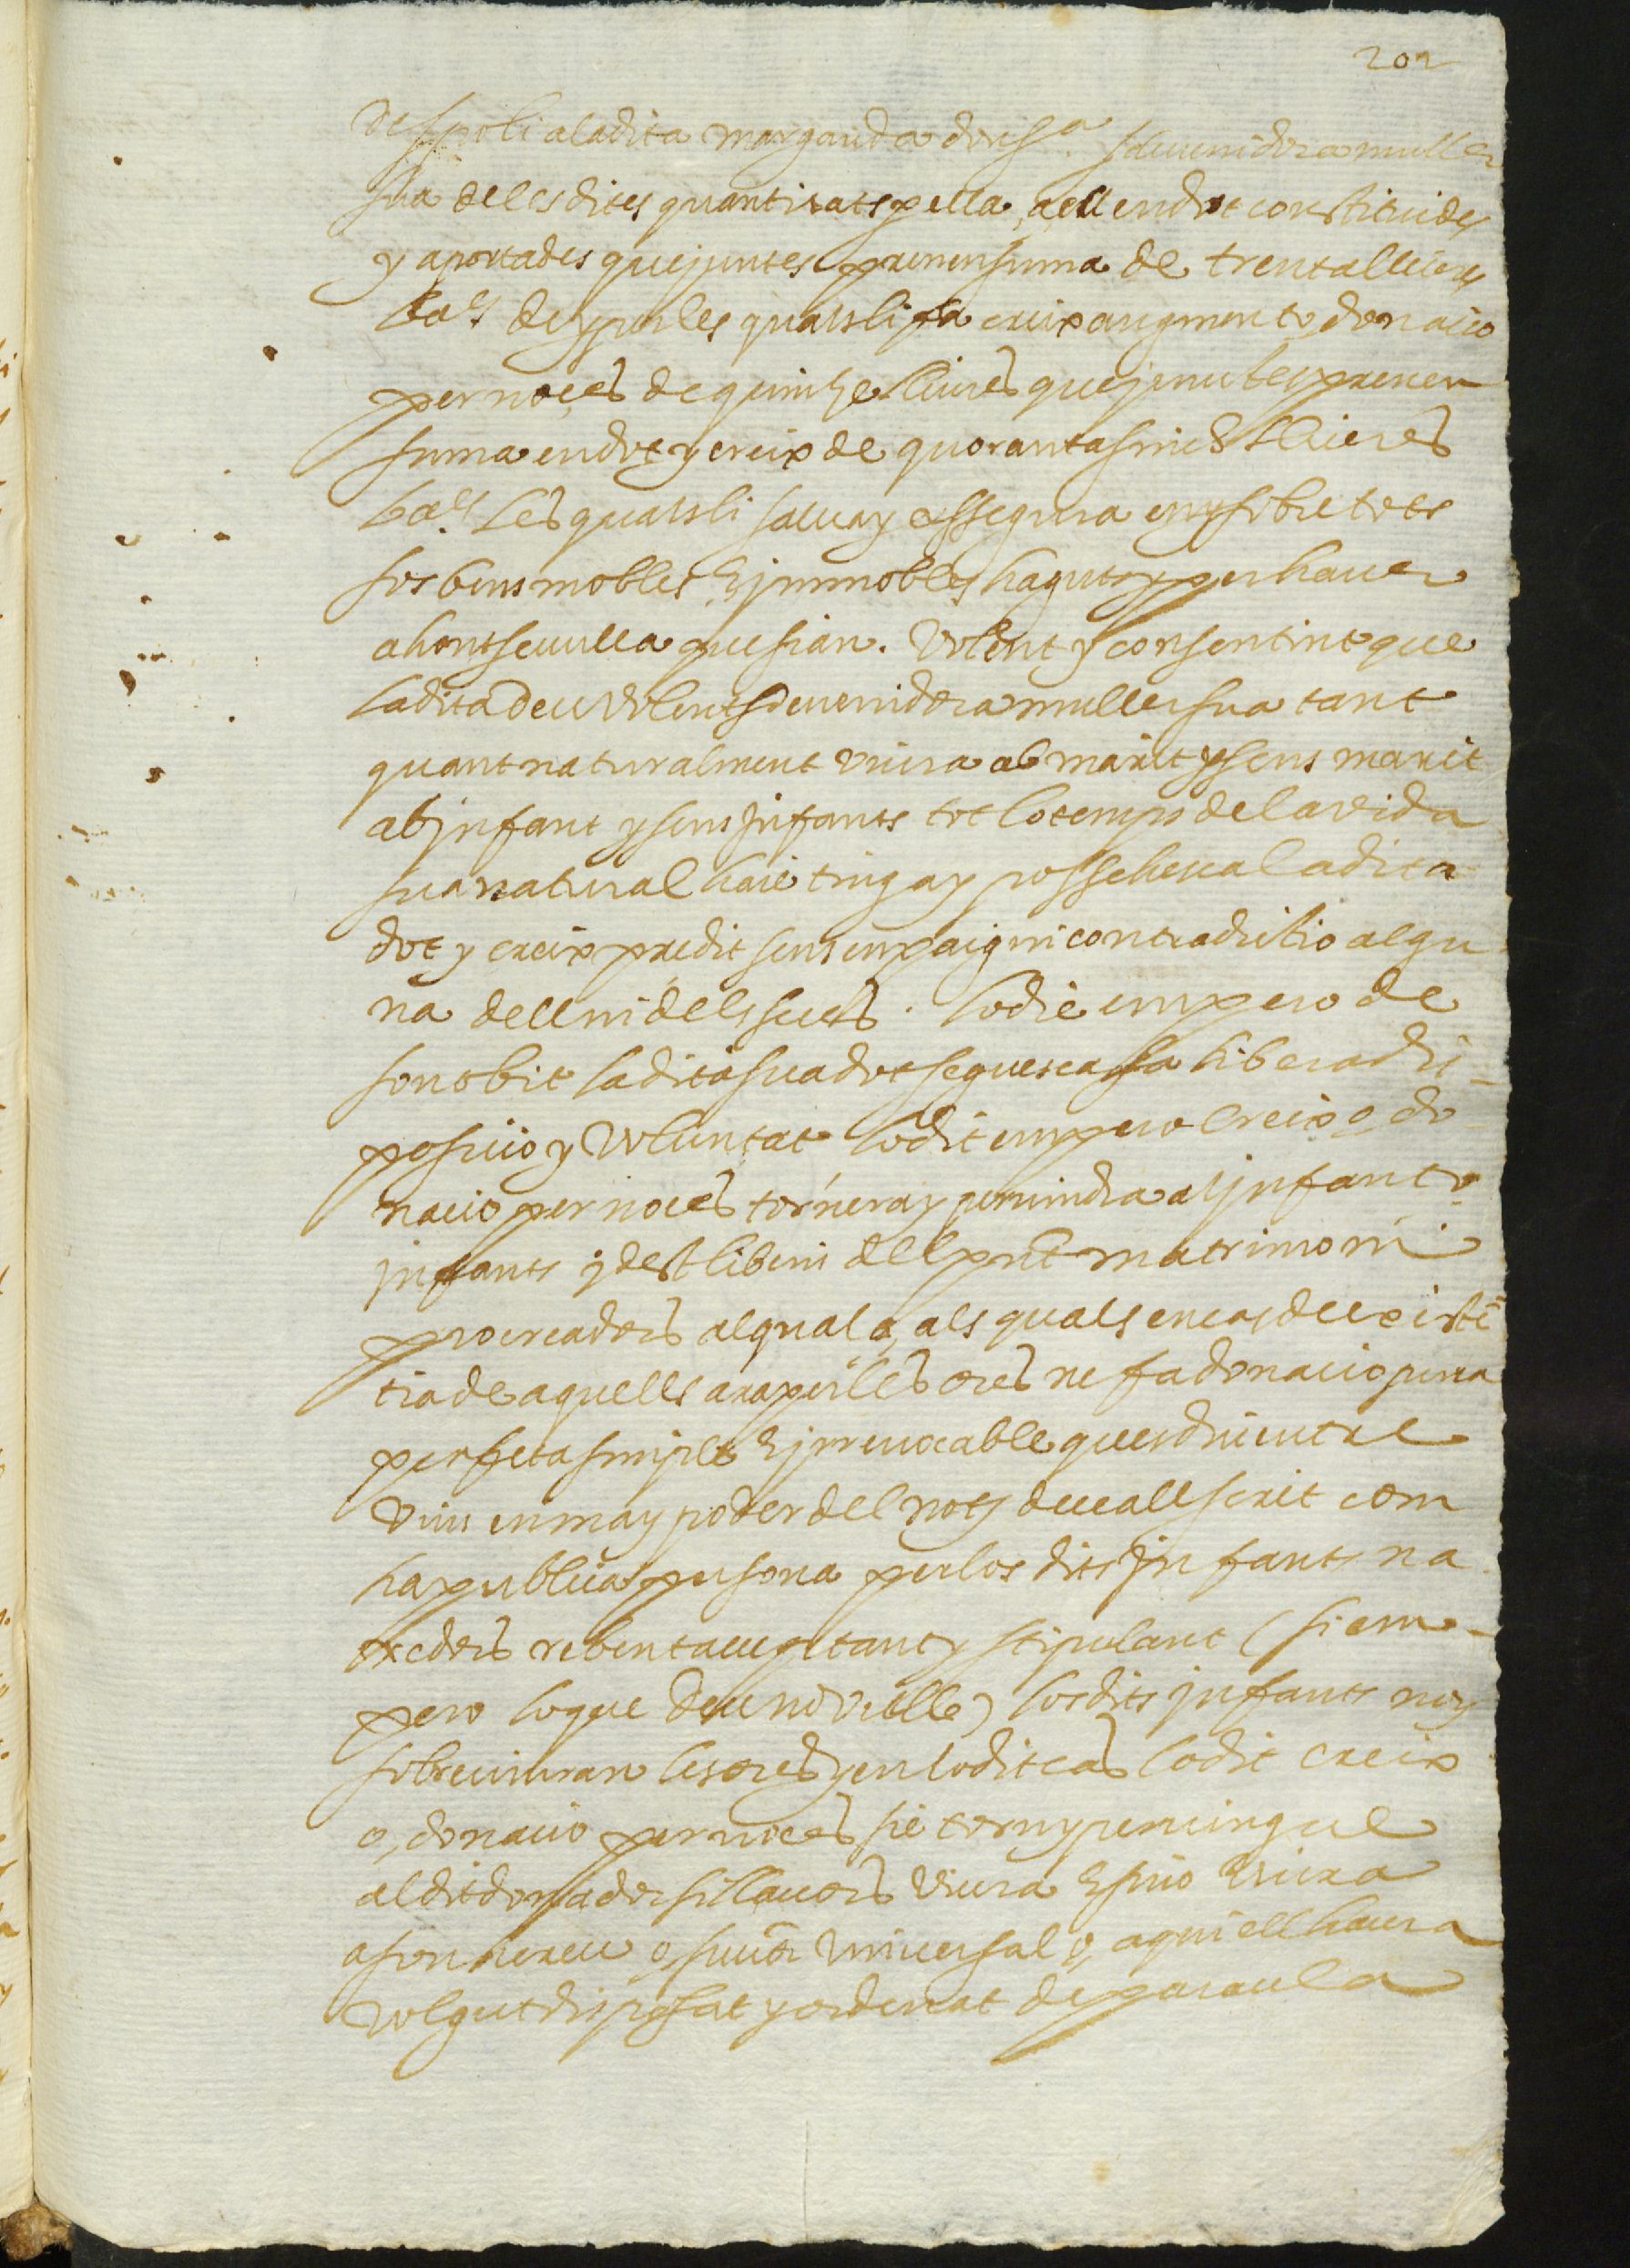 202
de spoli a la dita margarida donsa. sdevenidora muller
sua de les dites quantitats p ella, a ell en dot constituides
y aportades que juntes prenen suma de trenta lliures
bas. de y per les quals li fa creix augment o donacio
per noces de quinse lliures que juntes prenen
suma en dot y creix de quoranta sinch lliures
bas. Les quals li salva y assegura en y sobre tots
sos bens mobles, E immobles haguts y per haver
a hont se vulla que sian. Volent y consentint que
la dita deu volent sdevenidora muller sua tant
quant naturalment viura ab marit y sens marit
ab jnfant y sens jnfants tot lo temps de la vida
sua natural haie tinga y possehesca la dita
dot y creix predit sens empaig ni contradictio algu
na de ell ni dels seus. Lo die empero de
son obit la dita sua dot seguesca sa libera dis-
posicio y voluntat lo dit empero creix o do
nacio per noces tornera y pervindra al jnfant o
jnfants ÿdest liberis del pnt matrimoni
procreadors al qual o, als quals en cas de existe
tia de aquells ara per les ores ne fa donacio pura
perfeta simple E jrrevocable ques diu entre
vius en ma y poder del nots devall scrit com
ha publica persona per los dits jnfants na
xedors rebent acceptant y stipulant (si em-
pero lo que deu no vulle) los dits jnfants noy
sobreviuran les ores y en lo dit cas lo dit creix
o, donacio per noces sie torn y pervingue
al dit donador si llavors viura E sino viura
a son hereu o, succr universal o, a qui ell haura
volgut disposat y ordenat de paraula